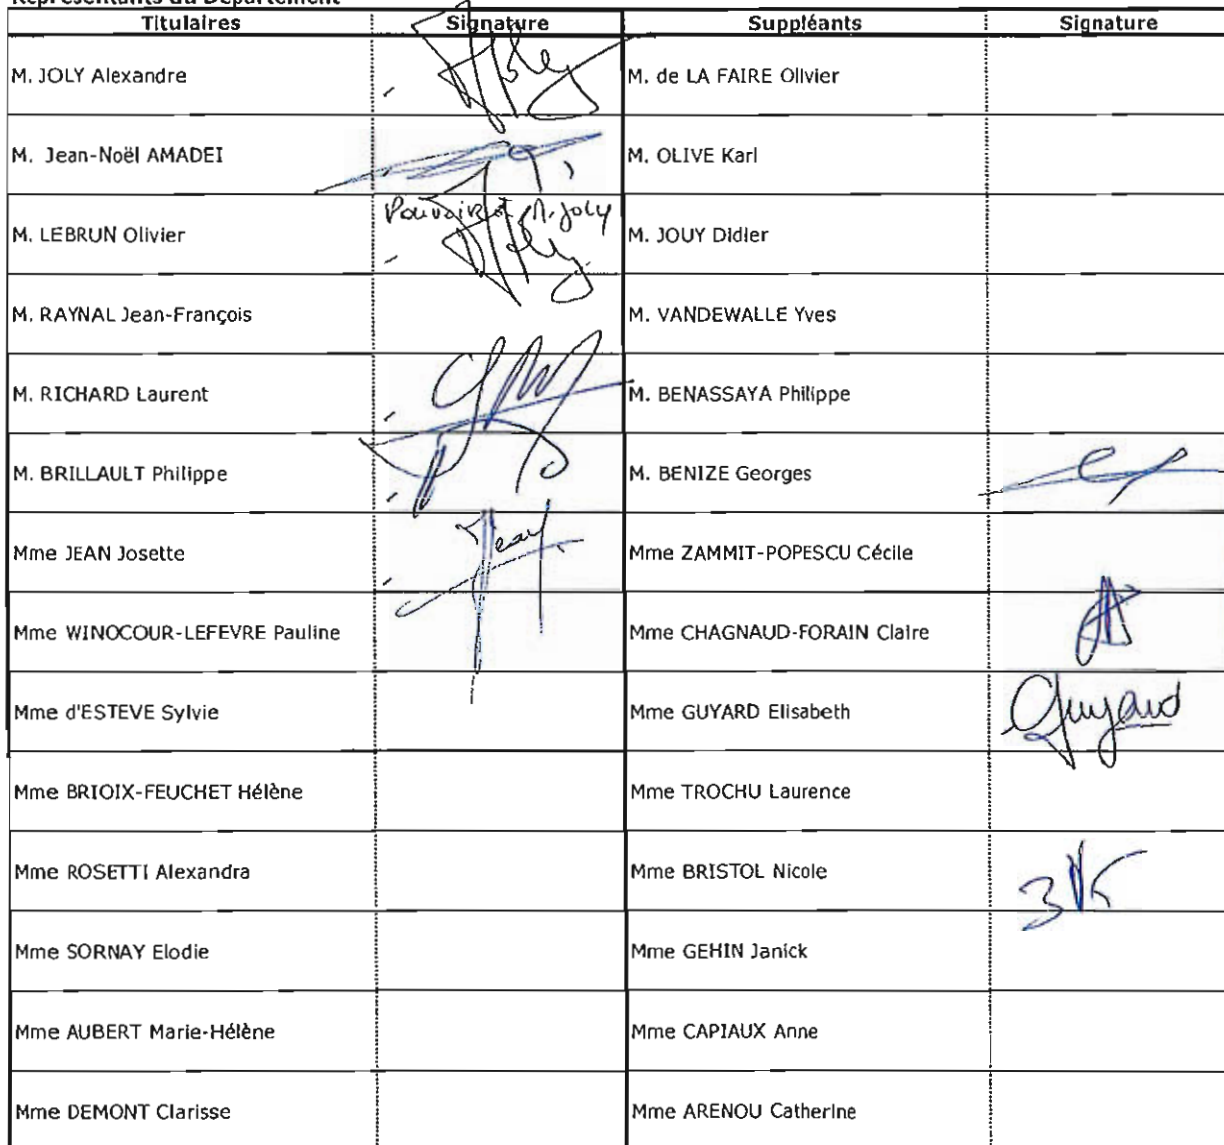 Représentants du Département
Titulaires Signature Suppléants Signature
M. JOLY Alexandre Joly M. de LA FAIRE Olivier
M. Jean-Noël AMADEI M. OLIVE Karl
Pouvoir à A. Joly
M. LEBRUN Olivier Joly M. JOUY Didier
M. RAYNAL Jean-François M. VANDEWALLE Yves
M. RICHARD Laurent M. BENASSAYA Philippe
M. BRILLAULT Philippe M. BENIZE Georges
Mme JEAN Josette Jean Mme ZAMMIT-POPESCU Cécile
Mme WINOCOUR-LEFEVRE Pauline Mme CHAGNAUD-FORAIN Claire
Mme d'ESTEVE Sylvie Mme GUYARD Elisabeth Guyard
Mme BRIOIX-FEUCHET Hélène Mme TROCHU Laurence
Mme ROSETTI Alexandra Mme BRISTOL Nicole
Mme SORNAY Elodie Mme GEHIN Janick
Mme AUBERT Marie-Hélène Mme CAPIAUX Anne
Mme DEMONT Clarisse Mme ARENOU Catherine